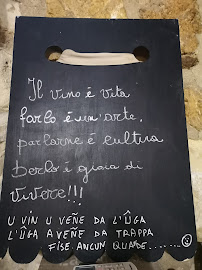 Il vino é vita
farlo é un'arte,
parlarne é cultura
berlo é gioia di
vivere!!!
U VIN U VEÑE DA L'ÛGA
L'ÛGA A VEÑE DA TRAPPA
FISE ANCUN QUARDE........